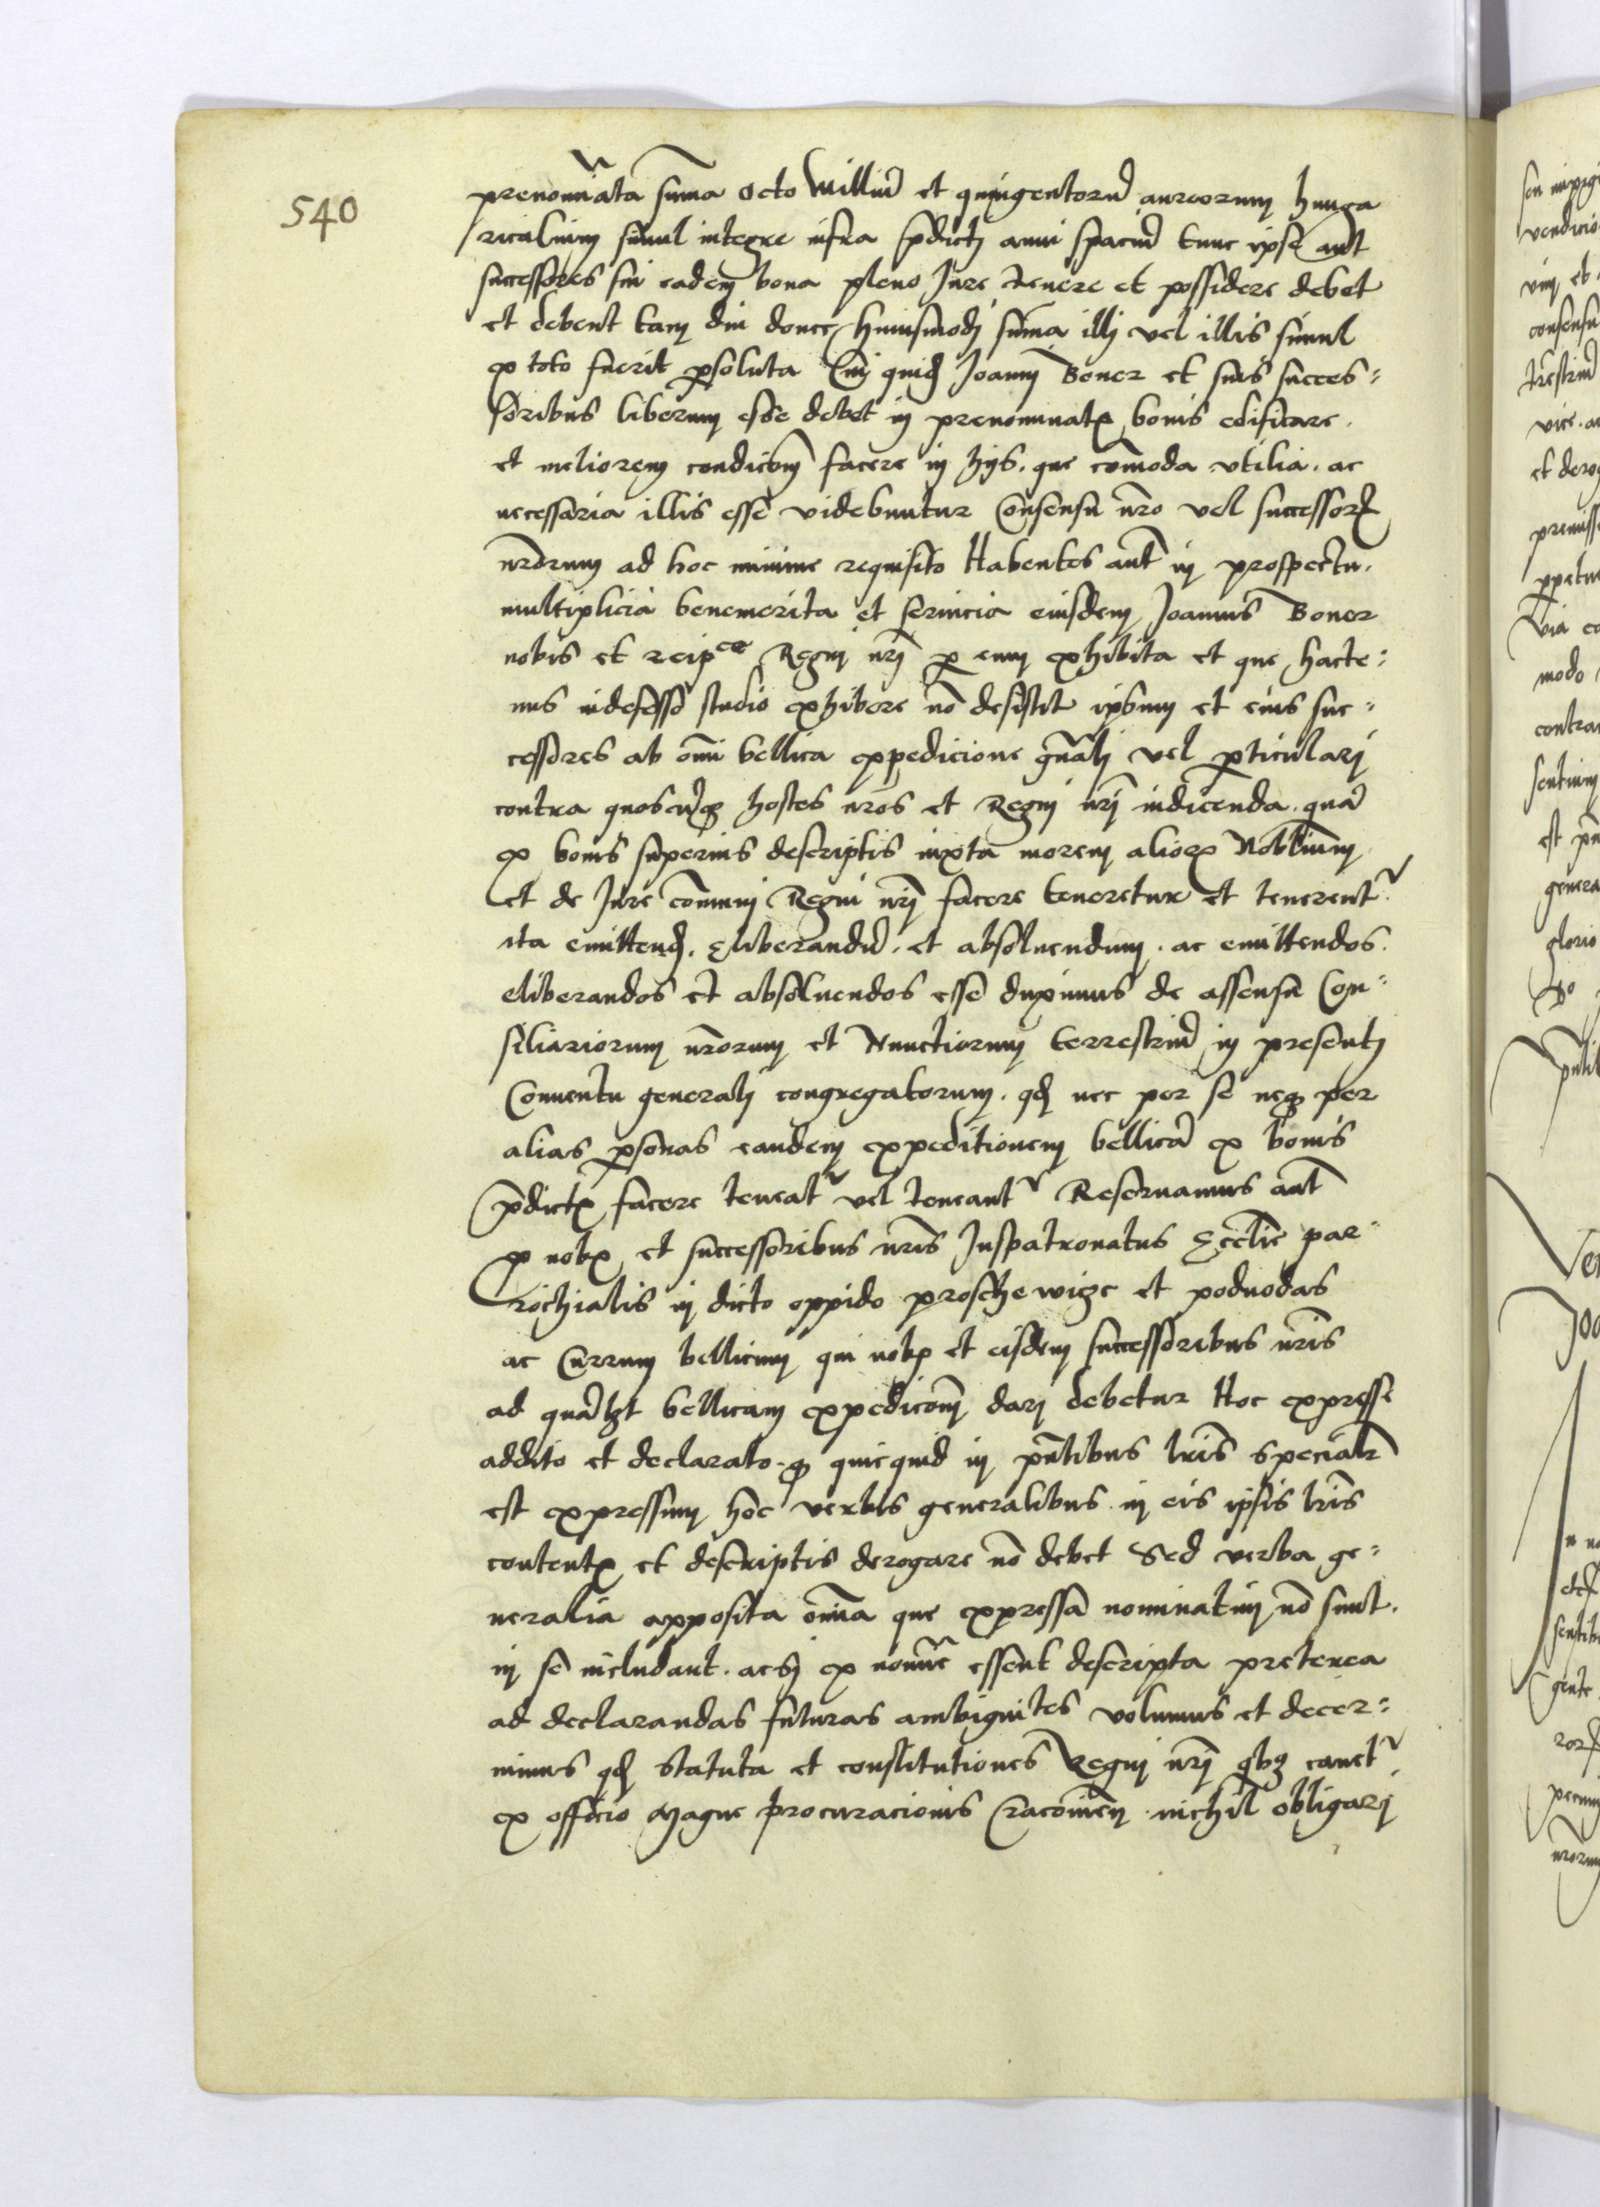 540
prenoīata sum̄a octo Milliū et quingentorū aureorum hunga
ricalium simul integre infra p̄dicti anni spaciū tunc ipse aut
successores sui eadem bona pleno Jure tenere et possidere debet
et debent tam diu donec huiusmodi sum̄a illi vel illis simul
ex toto fuerit ꝑsoluta Cui quid Joanni Boner et suis succes=
soribus liberum esse debet in prenominatis bonis edificare.
et meliorem condicōm̄ facere in hijs. que com̄oda vtilia. ac
necessaria illis esse videbuntur Consensu nr̄o vel successoꝝ
nr̄orum ad hoc minime requisito Habentes aut̄ in prospectu.
multiplicia benemerita et seruicia eiusdem Joannis Boner
nobis et reipce Regni nr̄j ꝑ eum exhibita et que hacte=
nus indefesso studio exhibere nō desistit ipsum et eius suc=
cessores ab om̄i bellica expedicione gn̄ali vel ꝑticulari
contra quoscūqꝫ hostes nr̄os et Regni nr̄j indicenda. quā
ex bonis superius descriptis iuxta morem alioꝝ Nobilium
et de Jure com̄uni Regni nr̄j facere teneretur et tenerent
ita emittend. Eliberandū. et absoluendum. ac emittendos.
eliberandos et absoluendos esse duximus de assensu Con=
siliariorum nr̄orum et Nunctiorum terrestriū in presenti
Conuentu generali congregatorum. qđ nec per se neqꝫ per
alias ꝑsonas eandem expeditionem bellicā ex bonis
p̄dictis facere teneat vel teneant Reseruamus aut̄
ꝓ nobis et successoribus nr̄is Juspatronatus Eccl̄ie par=
rochialis in dicto oppido proschewigc et poduodas
ac Currum bellicum qui nobis et eisdem successoribus nr̄is
ad quālꝫt bellicam expedicōm̄ dari debetur Hoc expresse
addito et declarato. qꝫ quicquid in pn̄tibus lr̄is specialr̄
est expressum hoc verbis generalibus in eis ipsis lr̄is
contentis et descriptis derogare nō debet Sed verba ge=
neralia apposita om̄ia que expressa nominatim nō sunt.
in se includant. acsi ex noīe essent descripta preterea
ad declarandas futuras ambiguites volumus et decer=
nimus qđ statuta et constitutiones Regni nr̄j qbꝫ cauet
ex officio Magne procuracionis Cracouien̄ nichil obligari